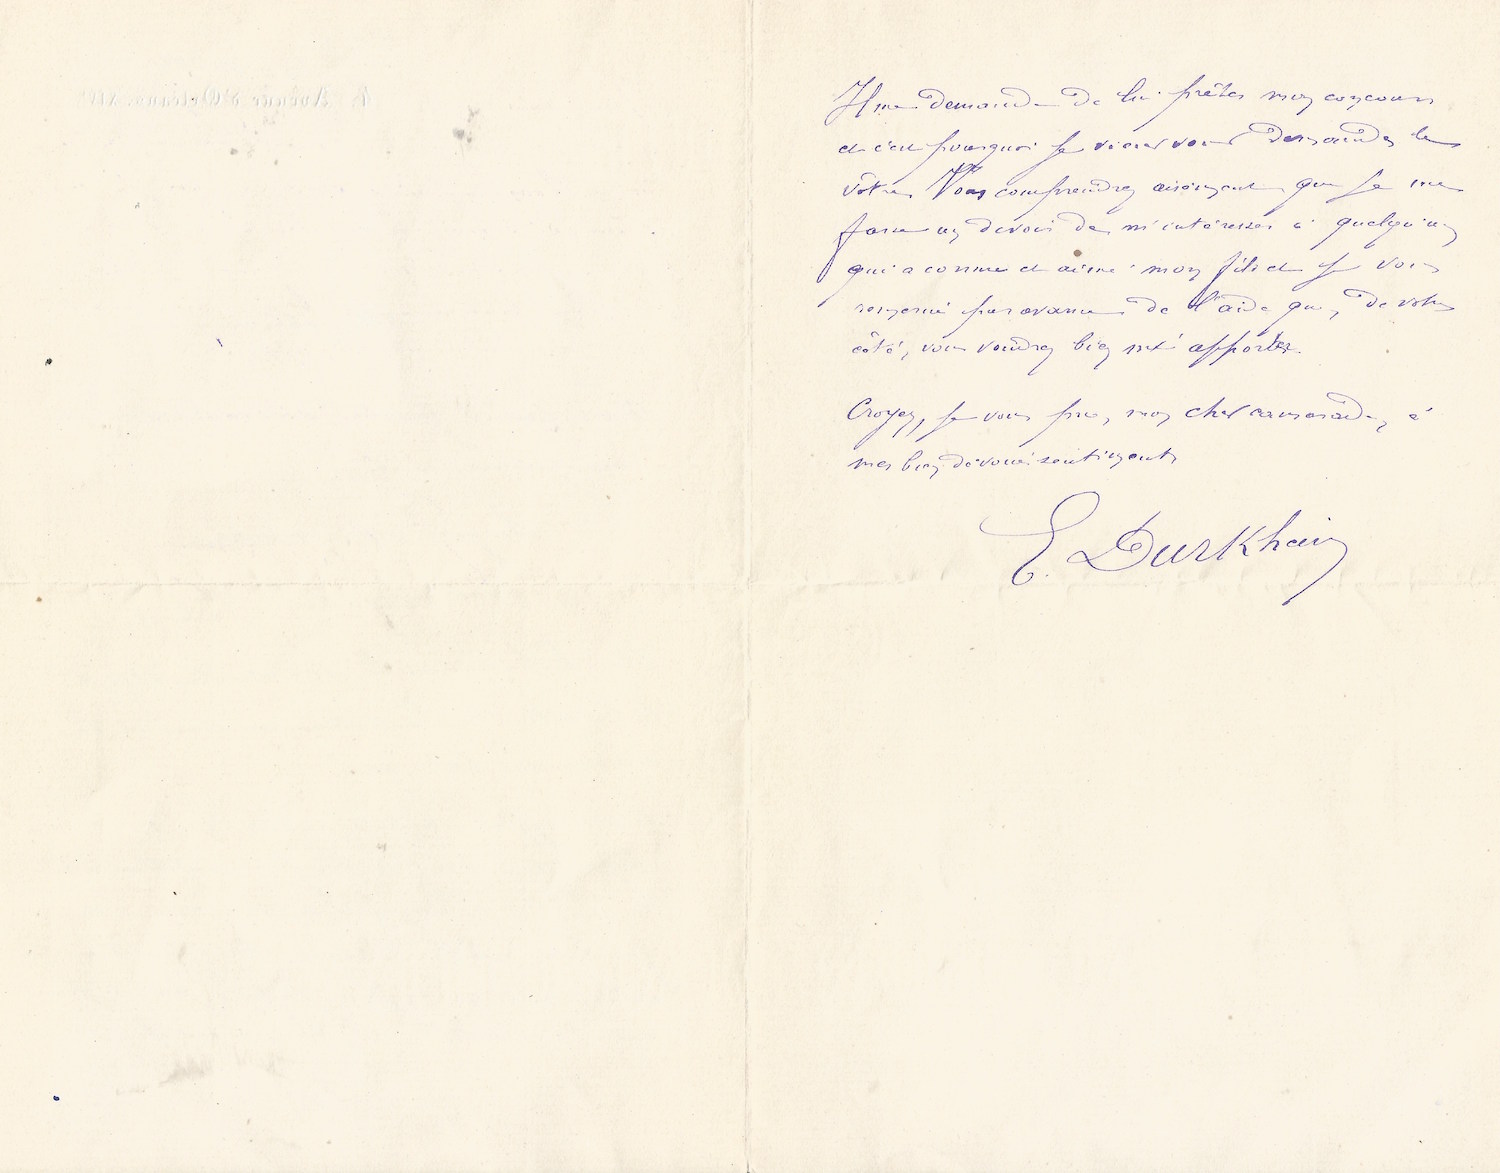 4, Avenue d'Orléans. XIVe
Il me demande de lui prêter mon concours
et c'est pourquoi je viens vous demander le
vôtre. Vous comprendrez aisément que je me
fasse un devoir de m'intéresser à quelqu'un
qui a connu et aimé mon fils et je vous
remercie par avance de l'aide que, de votre
côté, vous voudrez bien m'apporter.
Croyez, je vous prie, mon cher camarade, à
mes bien dévoués sentiments
E. Durkheim